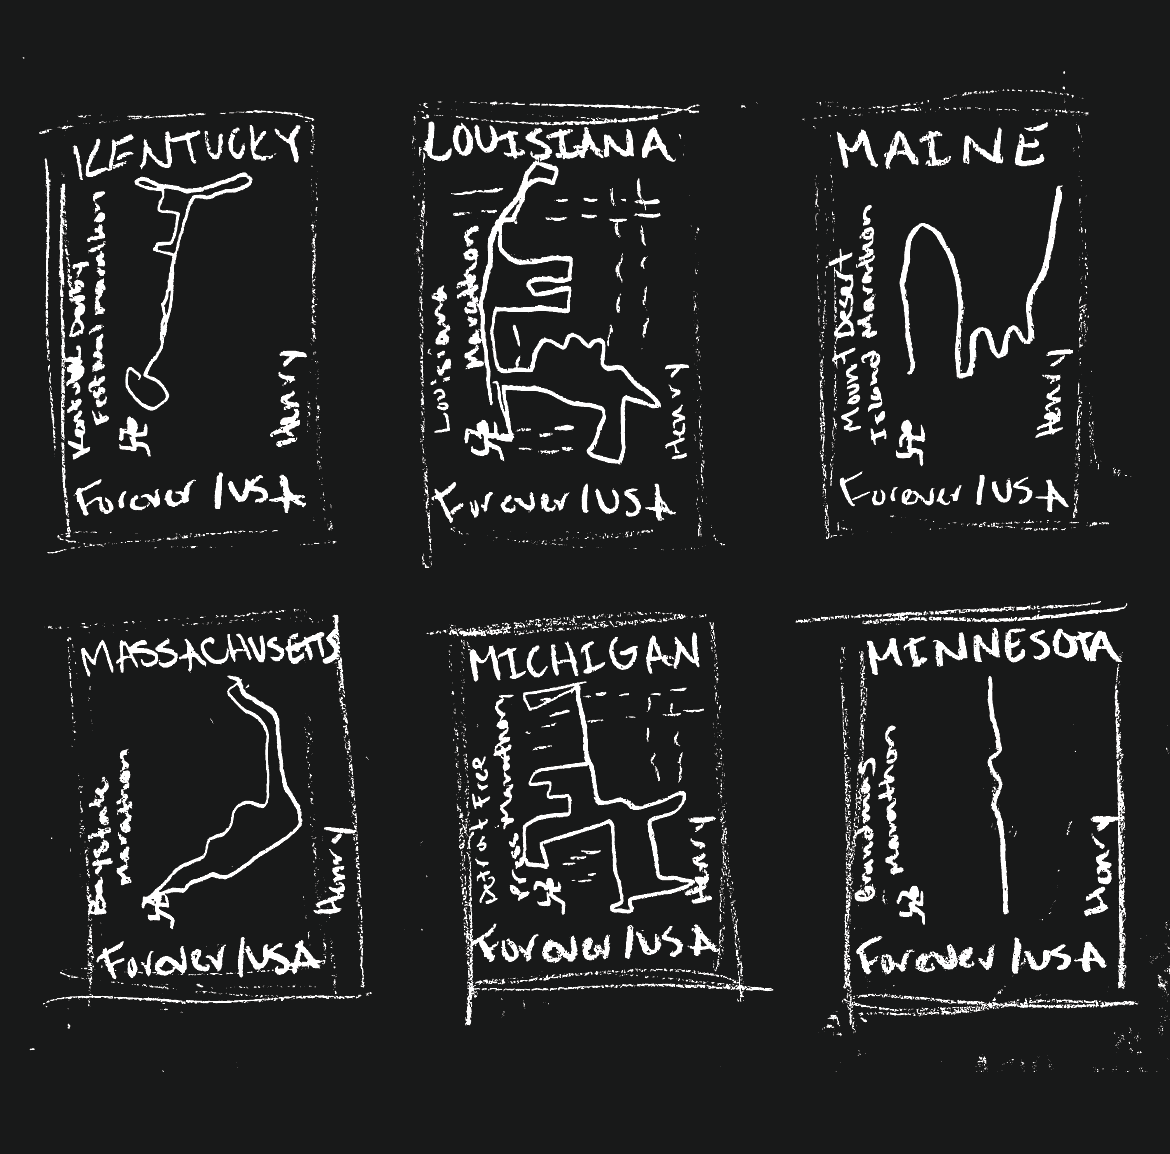 KENTUCKY
Kentucky Derby
Festival marathon
Henry
Forever / USA
LOUISIANA
Louisiana
Marathon
Henry
Forever / USA
MAINE
Mount Desert
Island Marathon
Henry
Forever / USA
MASSACHUSETTS
Baystate
Marathon
Henry
Forever / USA
MICHIGAN
Detroit Free
Press Marathon
Henry
Forever / USA
MINNESOTA
Grandmas
Marathon
Henry
Forever / USA